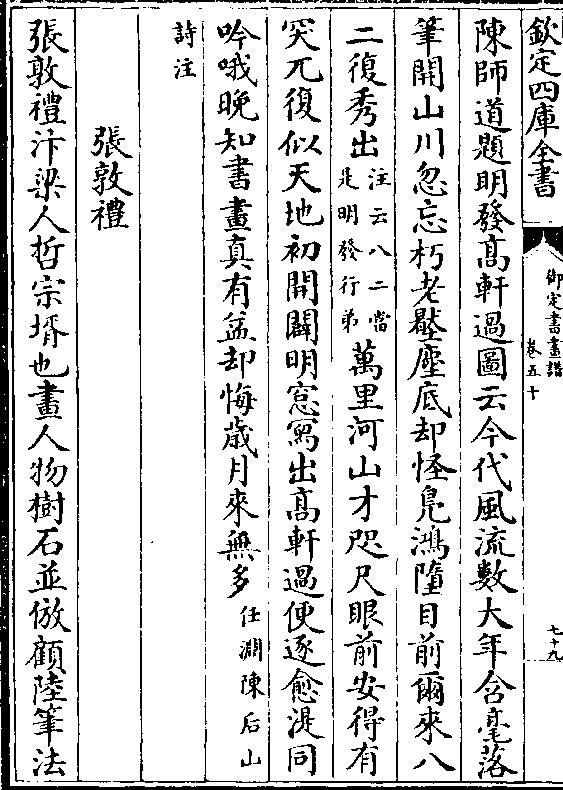 欽定四庫全書
御定書畫譜
卷五十
七十九
陳師道題明發高軒過圖云今代風流數大年含毫落
筆開山川忽忘朽老壓塵底却怪鳧鴻墮目前爾來八
二復秀出注云八二當是明發行弟萬里河山才咫尺眼前安得有
突兀復似天地初開闢明窓寫出高軒過便逐愈湜同
吟哦晚知書畫真有益却悔歲月來無多任淵陳后山
詩注
張敦禮
張敦禮汴梁人哲宗壻也畫人物樹石並倣顧陸筆法